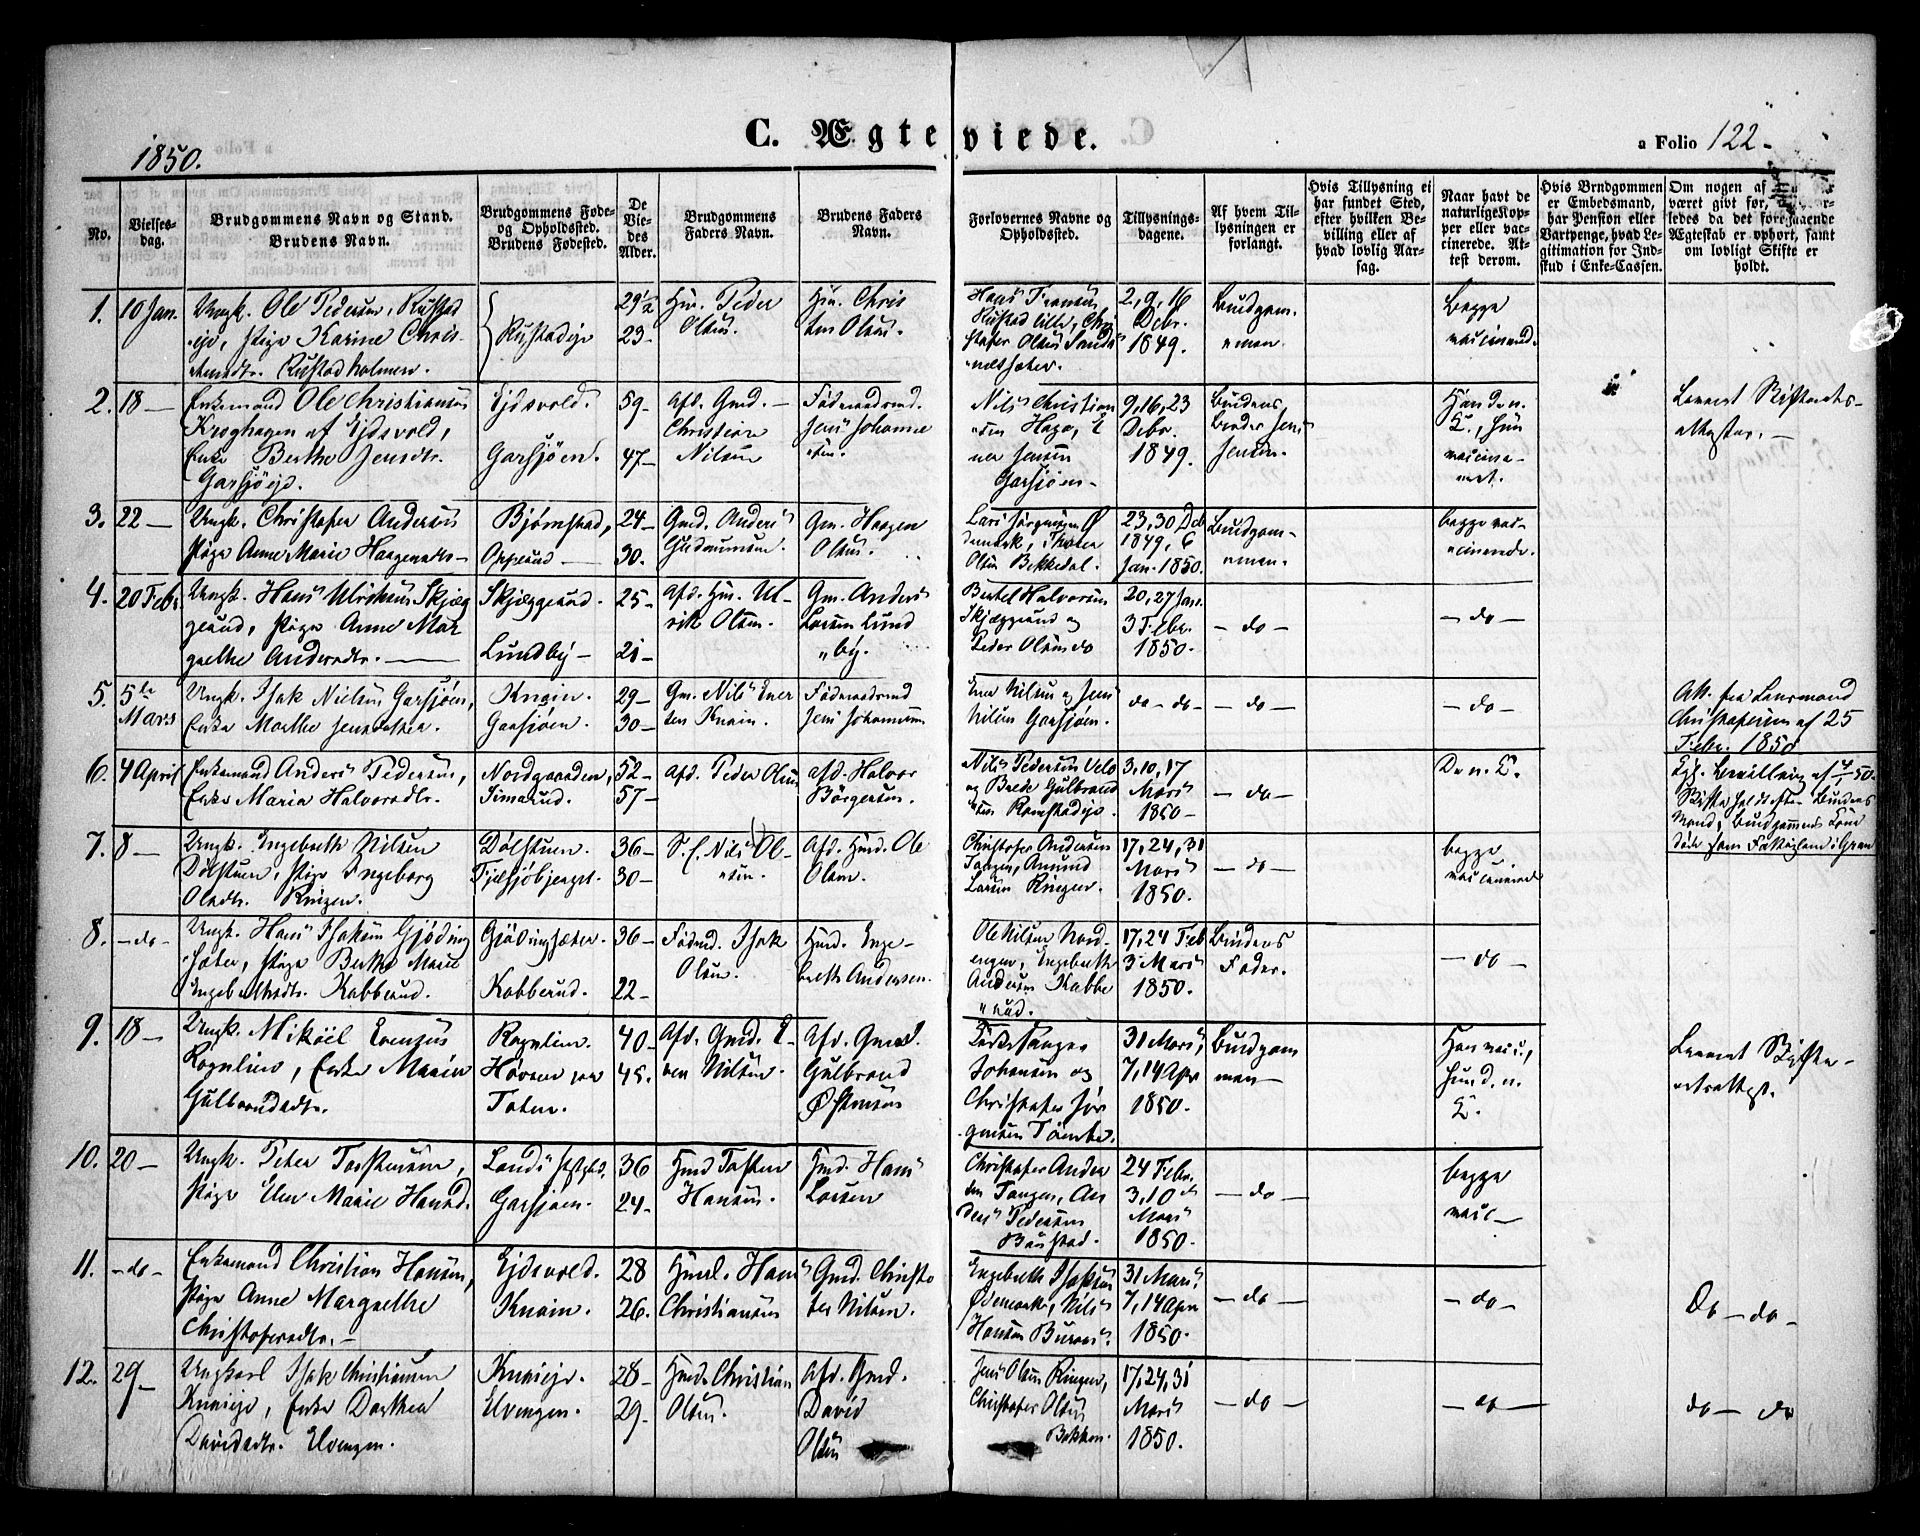 1850.
C. Ægteviede.
a Folio 122
No.
Vielses-
dag.
Brudgommens Navn og Stand.
Brudens Navn.
Brudgommens Føde-
og Opholdssted.
Brudens Fødested.
De
Vie-
des
Alder.
Brudgommens
Faders Navn.
Brudens Faders
Navn.
Forlovernes Navne og
Opholdssted.
Tillysnings-
dagene.
Af hvem Til-
lysningen er
forlangt.
Hvis Tillysning ei
har fundet Sted,
efter hvilken Be-
villing eller af
hvad lovlig Aar-
sag.
Naar havt de
naturlige Kop-
per eller vac-
cinerede. At-
test derom.
Hvis Brudgommen
er Embedsmand,
har Pension eller
Vartpenge, hvad Le-
gitimation for Ind-
skud i Enke-Cassen.
Om nogen af
været gift før,
ledes da det foregaaende
Ægteskab er ophørt, samt
om lovligt Skifte er
holdt.
1. 10 Jan.
Ungk. Ole Pedersen, Rustad
eje, Pige Karine Chris-
tensdtr. Rustadholmen.
Rustadeje
29½
23-
Hm. Peder
Olsen.
Hm. Chris
ten Olsen.
Hans Fransen
Rustad lille, Chri
stofer Olsen
2, 9, 16
Debr.
1849.
Brudgom-
men.
Begge
vaccinered.
2. 18 —
Enkemand Ole Christiansen
Kroghagen af Ejdsvold,
Enke Berthe Jensdtr.
Garsjøeje.
Ejdsvold.
Garsjøen.
59-
47-
Afd. Gmd.
Christian
Nilsen
Føderaadsmd.
Jens Johanne
sen.
Nils Christian
sen Haga, E
ner Jensen
Garsjøen-
9, 16, 23
Debr.
1849.
Brudens
Broder Jens
Jensen.
Han d. n.
K., hun
vaccine-
ret.
Leveret Skifterets-
attester. —
3. 22 —
Ungk. Christofer Andersen
Pige Anne Marie Haagensdtr-
Bjørnstad,
Opperud —
24-
30.
Gmd. Anders
Gudmunsen.
Gm. Haagen
Olsen.
Lars Jørgensen Ø
demark, Thorer
Olsen Bekkedal.
23, 30 Deb
1849, 6
Jan. 1850.
Brudgom-
men.
begge vac-
cinerede.
4. 20 Feb.
Ungk. Hans Ulriksen Skjæg
gerud, Pige Anne Mar
grethe Andersdtr. —
Skjæggerud
Lundby-
25-
21-
Afd. Hm. Ul-
rik Olsen.
Gm. Anders
Larsen Lund
by.
Bertel Halvorsen
Skjæggerud og
Peder Olsen do
20, 27 Jan.
3 Febr.
1850.
— do —
— do —
5. 5te
Mars
Ungk. Isak Nielsen Garsjøen,
Enke Marthe Jensdatter.
Knain.
Garsjøen.
29-
30-
Gm. Nils Ener
sen Knain.
Føderaadsmd
Jens Johannesen
Ener Nilsen og Jens
Nilsen Garsjøen.
do - do -
- do -
- do -
Att. fra Lensmand
Christofersen af 25
Febr. 1850
6. 4 April
Enkemand Anders Pedersen,
Enke Maria Halvorsdtr.
Nordgaarden,
Simarud.
52-
57-
Afd. Peder Olsen
afd. Halvor
Børgersen.
Nils Pedersen
og Gulbrand
sen Ramstadeje
3, 10, 17
Mars
1850-
— do —
De n. K.
Kgl. Bevillning af
Skifte holdt efter Brudens
Mand, Brudgommens Kone
døde som Fattiglem i Gran
7. 8 —
Ungk. Engebreth Nilsen
Dølstuen, Pige Ingeborg
Olsdtr. Ringen.
Dølstuen.
Fjæsjøbjerget.
36-
30-
S. f. Nils Ol-
sen.
Afd. Hmd. Ole
Olsen.
Christofer Andersen
Tangen, Amund
Larsen Ringen.
17, 24, 31
Mars
1850.
— do —
begge
vaccinerede
8. -do-
Ungk. Hans Isaksen Gjøding
sæter, Pige Berthe Marie
Engebrethsdtr. Kabberud.
Gjødingsæter.
Kabberud.
36-
22-
Føderd. Isak
Olsen.
Hmd. Enge-
breth Andersen.
Ole Nilsen Nord-
enger, Engebreth
Andersen Kabbe
rud.
17, 24 Feb
3 Mars
1850.
Brudens
Fader.
— do —
9. 18 —
Ungk. Mikael Evensen
Rognlien, Enke Maria
Gulbrandsdtr.
Rognlien.
Hovern paa
Toten.
40-
45.
Afd. Gmd. E-
ven Nilsen.
Afd. Gmd.
Gulbrand
Østensen
Johansen og
Christofer Jør
gensen Tømte.
31 Mars,
7, 14 Apr
1850.
Brudgom
men—
Han vacc.,
hun d. n.
K.
Leveret Skifte-
retsattest.
10. 20 —
Ungk. Peter Torstensen,
Pige Elen Marie Hansd.
Lands Præstgjeld.
Garsjøen.
36
24-
Hmd Tosten
Hansen.
Hmd. Hans
Larsen
Christofer Ander
sen Tangen, An
ders Pedersen
Baustad.
24 Febr.
3, 10 de
Mars
1850.
— do —
begge
vacc—
11. -do-
Enkemand Christian Hansen,
Pige Anne Margrethe
Christofersdtr. —
Ejdsvold.
Knain.
28
26.
Hmd. Hans
Christiansen
Gmd. Christo
fer Nilsen.
Engebreth Isaksen
Ødemark, Nils
Hansen Buraas.
31 Mars.
7, 14 Apr
1850.
— do —
— do —
Do — do -
12. 29-
Ungkarl Isak Christiansen
Knaieje, Enke Dorthea
Davidsdtr. Elvengen.
Knaieje.
Elvengen.
28-
29-
Hmd. Christian
Olsen.
afd. Gmd.
David
Olsen
Jens Olsen Ringen,
Christofer Olsen
Bakken.
17, 24, 31
Mars
1850.
— do —
— do —
do — do